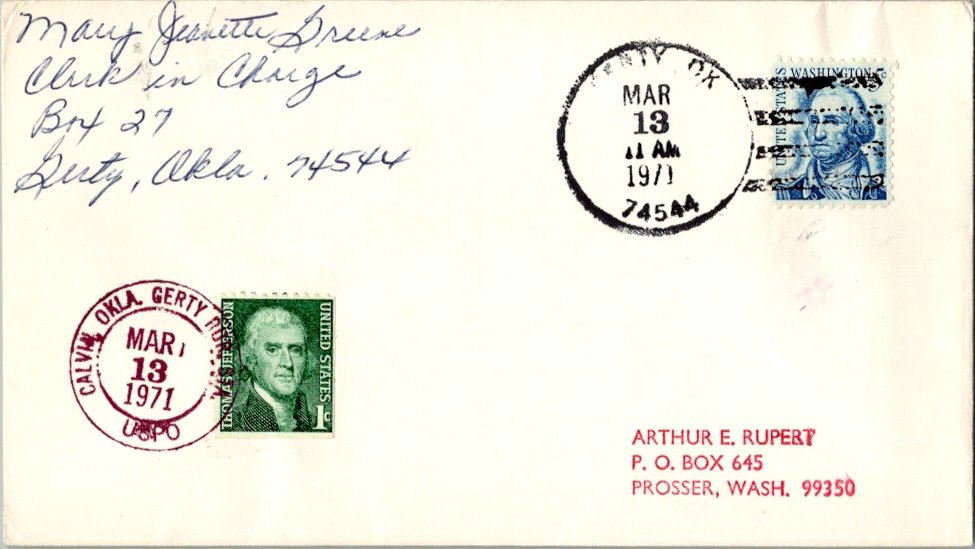 Mary Jeanette Greene
Clerk in Charge
Box 27
Gerty, Okla. 74544
GERTY, OK
MAR
13
11 AM
1971
74544
UNITED STATES
WASHINGTON 5c
CALVIN, OKLA. GERTY
MAR
13
1971
USPO
THOMAS JEFFERSON
UNITED STATES
1c
ARTHUR E. RUPERT
P. O. BOX 645
PROSSER, WASH. 99350